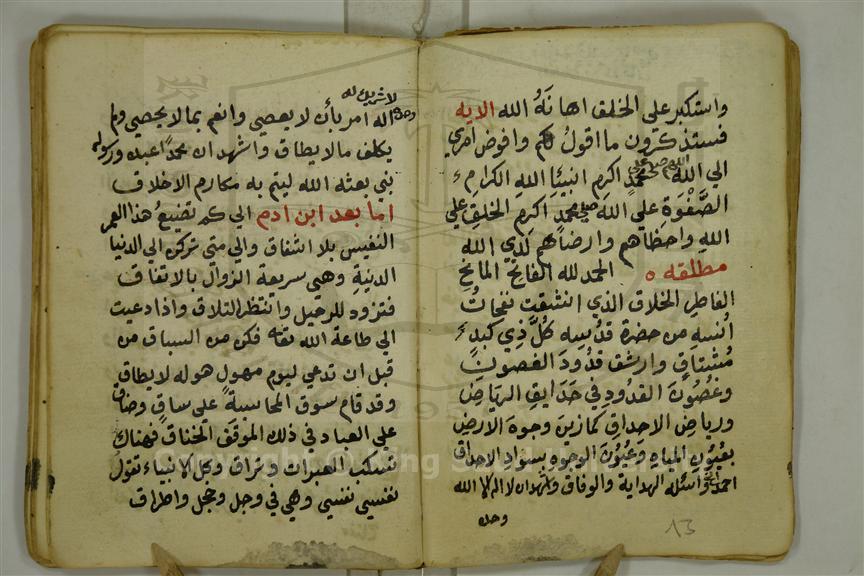 واستكبر علي الخلق اهانهُ الله الايه
فستذكرون ما اقولُ لكم وافوض امري
الي الله صلي محمدٍ اكرم انبياء الله الكرام
الصَّفْوَةِ علي الله صلي محمدٍ اكرم الخلق علي
الله واحظاهم وارضاهم لَدَي الله
مطلقه الحمد لله الفاتح المانح
الفاطر الخلاق الذي انشقت نفحاتُ
اُنسه من حضرة قدسه كُلَّ ذي كبدٍ
مُشتاقٍ وارشف قدُودَ الغصونِ
وغصُونَ القدُودِ في حَدَايقِ الرياضِ
ورياضِ الاحداقِ كما زين وجوهَ الارضِ
بعيُونِ المياه وعيُونَ الوجوه بسوادِ الاحداق
احمده واسئله الهداية والوفاق واشهدان لا اله الا الله
وحده
13
لا شريك له
وحده اله امر بأن لا يعصي وانعم بما لا يحصي ولم
يكلف ما لا يطاق واشهد ان محمدًا عبده ورسوله
نبي بعثه الله ليتم به مكارم الاخلاق
اما بعد ابن ادم الي كم تضييعُ هذا العمر
النفيس بلا اشفاق والي متي تركن الي الدنيا
الدنيةِ وهي سريعة الزوال بالاتفاق
فتزود للرحيل وانتظر التلاق واذا دعيت
الي طاعة الله تعه فكن من السباق من
قبل ان تدعي ليوم مهولٍ هوله لا يطاق
وقد قام سوق المحاسبة علي ساقٍ وضاق
علي العباد في ذلك الموقف الخناق فهناك
تسكب العبرات وتراق وكل الانبياء تقول
نفسي نفسي وهي في وجل وخجل واطراق